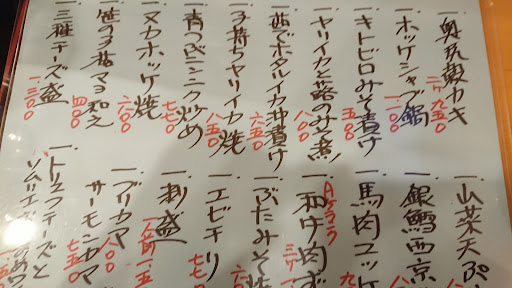 一.奥尻殻カキ 二ケ九五〇
一.ホッケシャブ鍋 一.二〇〇
一.キトビロみそ漬け 五〇〇
一.ヤリイカと蕗のみそ煮 八〇〇
一.茹でホタルイカ沖漬け 六五〇
一.子持ちヤリイカ焼 八五〇
一.青つぶニンニク炒め 七七〇
一.ヌカホッケ焼 六〇〇
一.笹の子梅マヨ和え 四〇〇
一.三種チーズ盛 一.三〇〇
一.山菜天ぷ
一.銀鱈西京
一.馬肉ユッケ 九
Aランク
一.和牛肉ず 三ケ一
一.ぶたみそ焼 六
一.エビチリ 七七
一.刺盛 一人前一.五
一.ブリカマ 八〇〇
サーモンカマ 七五〇
一.トリュフチーズと